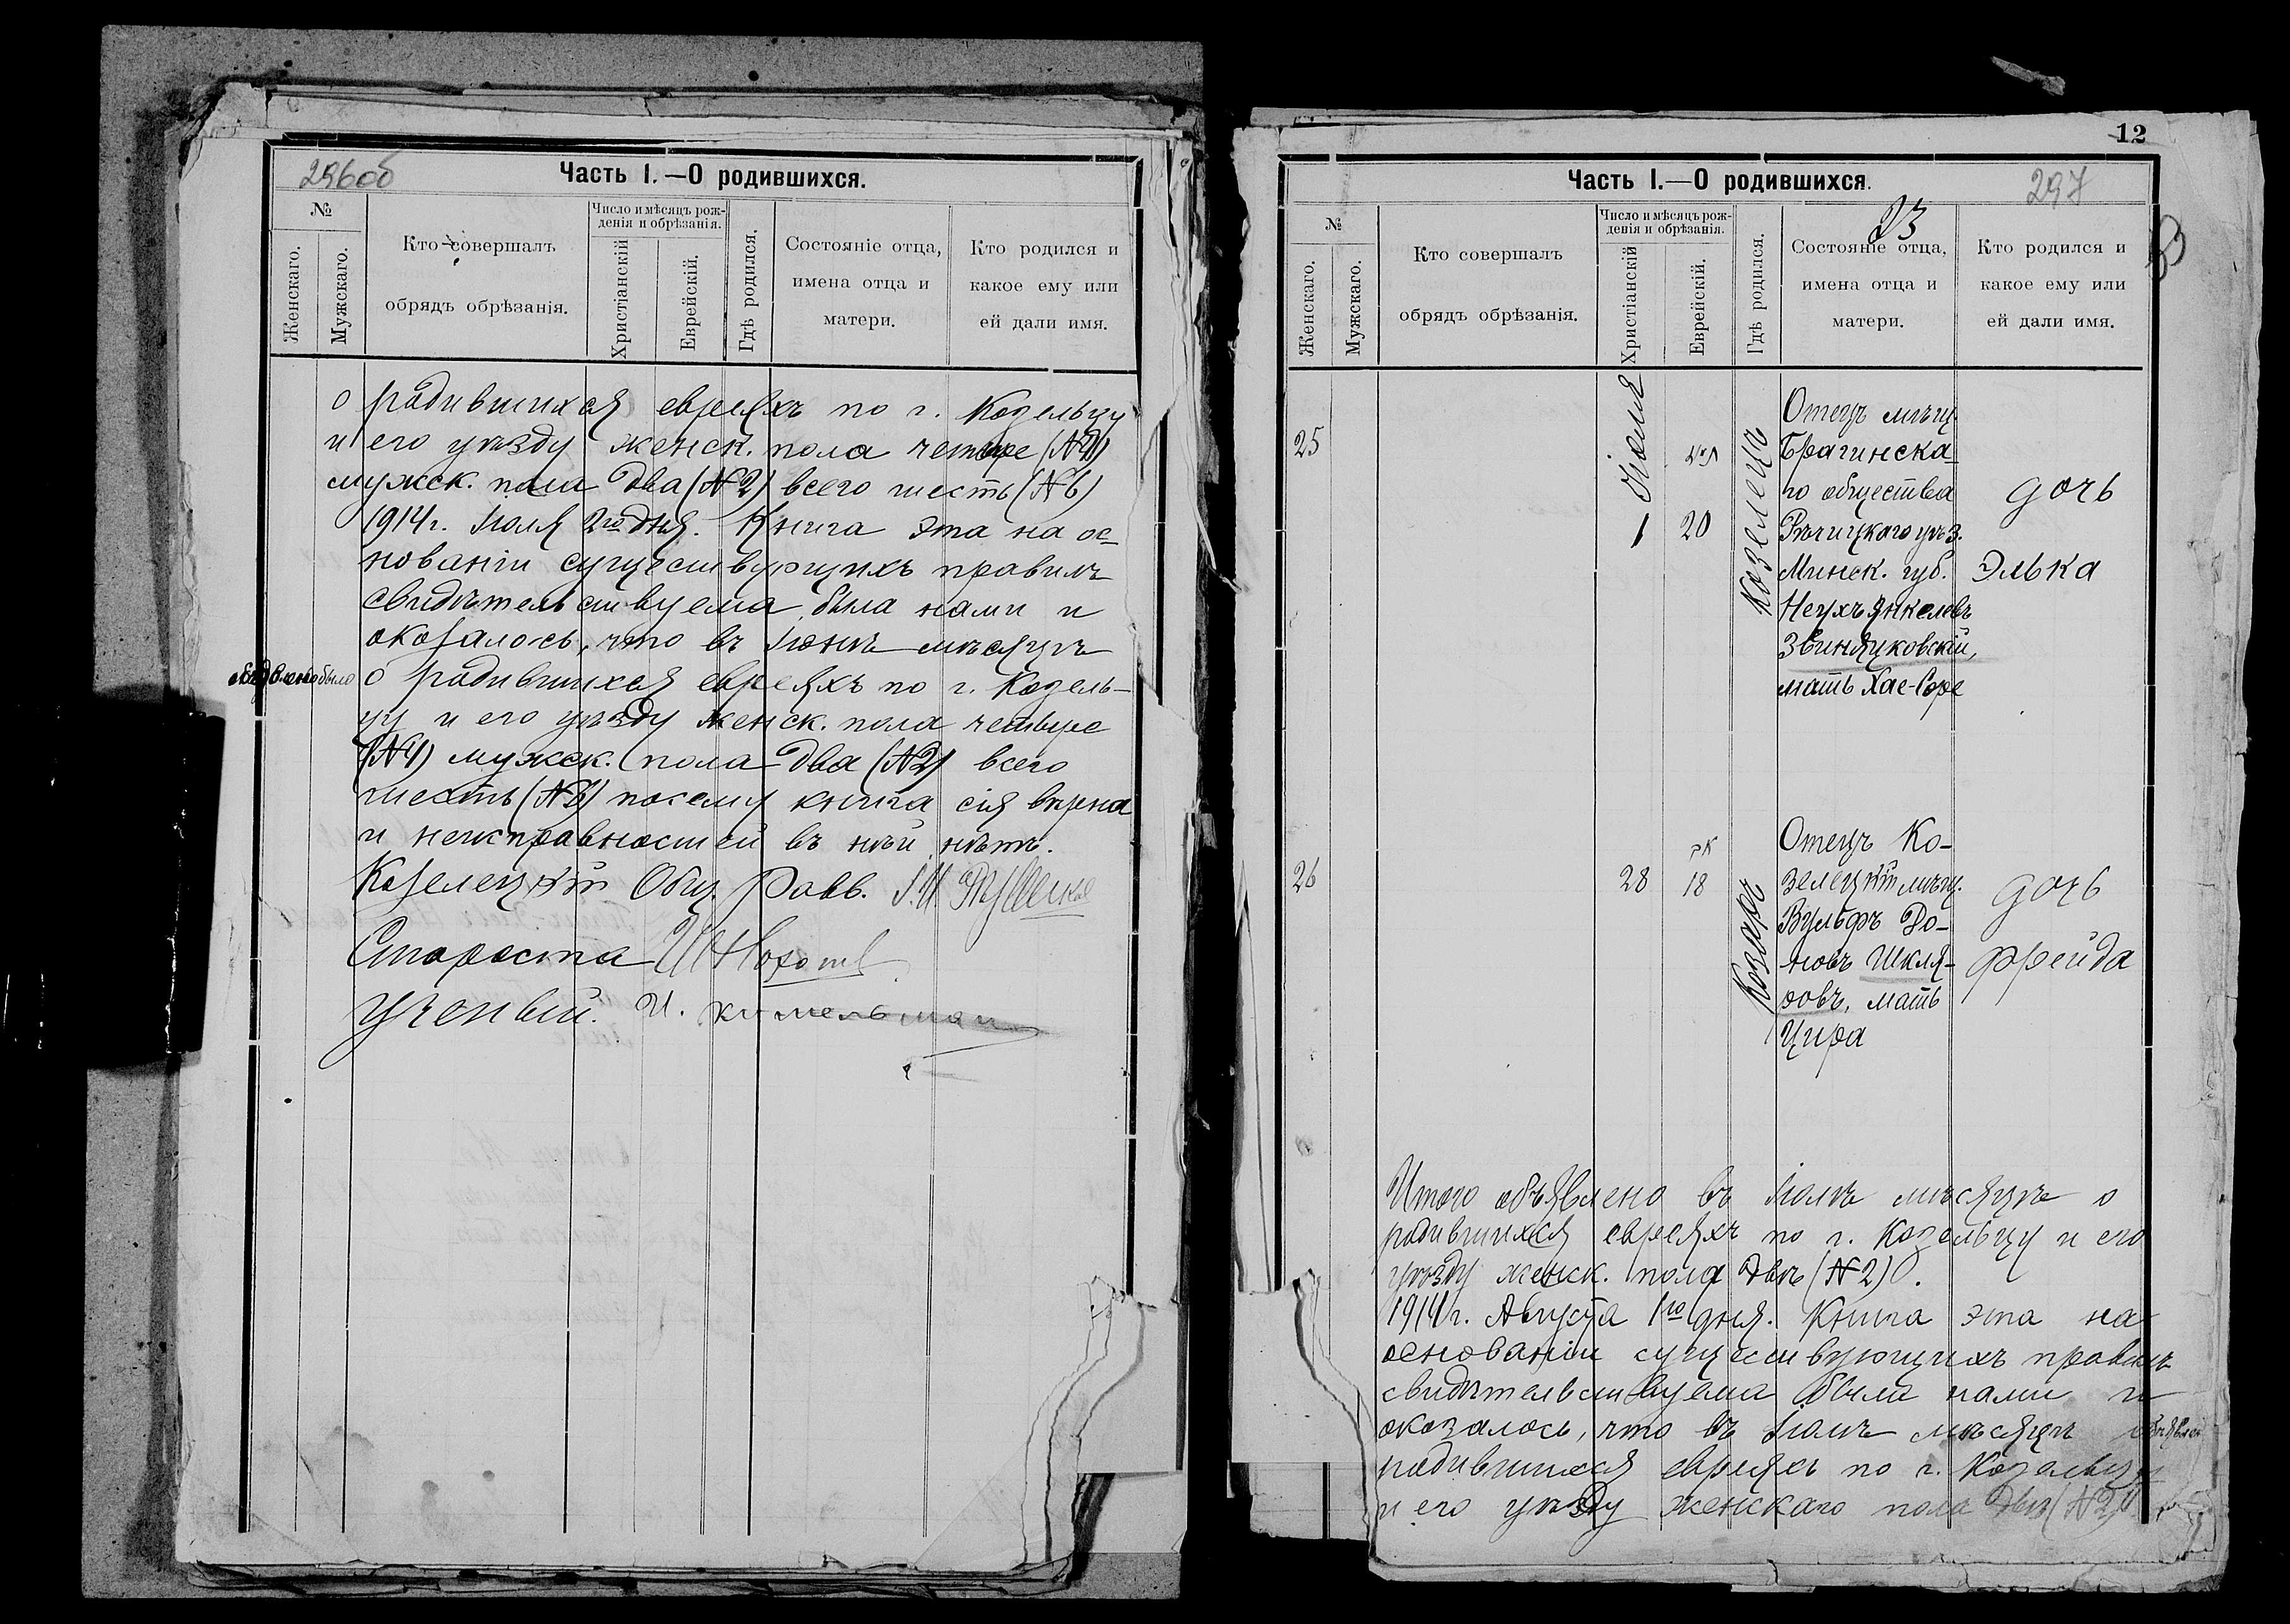 296об
Часть I.—О родившихся.
№
Женскаго.
Мужскаго.
Кто совершалъ
обрядъ обрѣзанія.
Число и мѣсяцъ рож-
денія и обрѣзанія.
Христіанскій
Еврейскій.
Гдѣ родился.
Состояніе отца,
имена отца и
матери.
Кто родился и
какое ему или
ей дали имя.
о родившихся евреяхъ по г. Козельцу
и его уѣзду женск. пола четыре (№4)
мужск. пола два (№2) всего шесть (№6)
1914г. Іюля 2го дня. Книга эта на ос-
нованіи существующихъ правилъ
свидѣтельствуема была нами и
оказалось, что въ Іюнѣ мѣсяцѣ
объявлено было о родившихся евреяхъ по г. Козель-
цу и его уѣзду женск. пола четыре
(№4) мужск. пола два (№2) всего
шесть (№6) посему книга сія вѣрна
и неисправностей въ ней нѣтъ.
Козелецкій Общ. Равв.
Староста
Ученый. И.
12
Часть I.—О родившихся.
297
23
№
Женскаго.
Мужскаго.
Кто совершалъ
обрядъ обрѣзанія.
Число и мѣсяцъ рож-
денія и обрѣзанія.
Христіанскій
Еврейскій.
Гдѣ родился.
Состояніе отца,
имена отца и
матери.
Кто родился и
какое ему или
ей дали имя.
25
Іюля
1
20
Козелецъ
Отецъ мѣщ.
Брагинска-
го общества
Рѣчицкаго уѣз.
Минск. губ.
Неухъ Янкелевъ
Звиняцковскій,
мать Хае-Соре
дочь
Элька
26
28
18
Козарь
Отецъ Ко-
зелецкій мѣщ.
Вульфъ До-
новъ Шкля-
ровъ, мать
Цира
дочь
Фрейда
Итого объявлено въ Іюлѣ мѣсяцѣ о
родившихся евреяхъ по г. Козельцу и его
уѣзду женск. пола двѣ (№2).
1914г. Августа 1го дня. Книга эта на
основаніи существующихъ правилъ
свидѣтельствуема была нами и
оказалось, что въ Іюлѣ мѣсяцѣ
родившихся евреяхъ по г. Козельцу
и его уѣзду женскаго пола двѣ (№2)